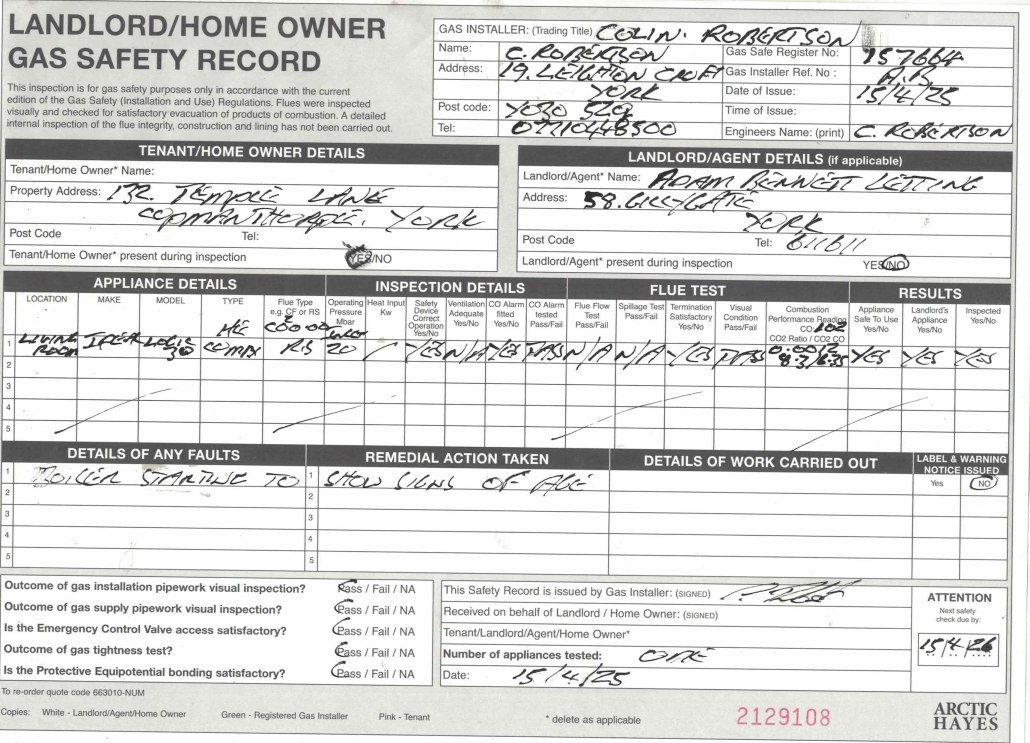 LANDLORD/HOME OWNER
GAS SAFETY RECORD
This inspection is for gas safety purposes only in accordance with the current
edition of the Gas Safety (Installation and Use) Regulations. Flues were inspected
visually and checked for satisfactory evacuation of products of combustion. A detailed
internal inspection of the flue integrity, construction and lining has not been carried out.
GAS INSTALLER: (Trading Title) COLIN. ROBERTSON
Name: C. ROBERTSON
Gas Safe Register No: 157664
Address: 19. LEIGHTON CROFT
Gas Installer Ref. No : A.B
YORK
Date of Issue: 15/4/25
Post code: YO30
Time of Issue:
Tel: 07710448500
Engineers Name: (print) C. ROBERTSON
TENANT/HOME OWNER DETAILS
Tenant/Home Owner* Name:
Property Address: 132. TEMPLE LANE
COPMANTHORPE. YORK
Post Code Tel:
Tenant/Home Owner* present during inspection YES/NO
LANDLORD/AGENT DETAILS (if applicable)
Landlord/Agent* Name: ADAM BENNETT LETTING
Address: 58. GILLYGATE
YORK
Post Code Tel: 611611
Landlord/Agent* present during inspection YES/NO
APPLIANCE DETAILS INSPECTION DETAILS FLUE TEST RESULTS
LOCATION MAKE MODEL TYPE Flue Type e.g. CF or RS Operating Pressure Mbar Heat Input Kw Safety Device Correct Operation Yes/No Ventilation Adequate Yes/No CO Alarm fitted Yes/No CO Alarm tested Pass/Fail Flue Flow Test Pass/Fail Spillage Test Pass/Fail Termination Satisfactory Yes/No Visual Condition Pass/Fail Combustion Performance Reading CO2 Ratio / CO2 CO Appliance Safe To Use Yes/No Landlord's Appliance Yes/No Inspected Yes/No
1 LIVING ROOM IDEAL LOGIC 30 H/E COMBI R.S 20 YES N/A YES PASS N/A N/A YES PASS YES YES YES
2
3
4
5
DETAILS OF ANY FAULTS REMEDIAL ACTION TAKEN DETAILS OF WORK CARRIED OUT LABEL & WARNING NOTICE ISSUED
1 BOILER STARTING TO 1 SHOW SIGNS OF AGE
Yes NO
2 2
3 3
4 4
5 5
Outcome of gas installation pipework visual inspection? Pass / Fail / NA
Outcome of gas supply pipework visual inspection? Pass / Fail / NA
Is the Emergency Control Valve access satisfactory? Pass / Fail / NA
Outcome of gas tightness test? Pass / Fail / NA
Is the Protective Equipotential bonding satisfactory? Pass / Fail / NA
This Safety Record is issued by Gas Installer: (SIGNED)
Received on behalf of Landlord / Home Owner: (SIGNED)
Tenant/Landlord/Agent/Home Owner*
Number of appliances tested: ONE
Date: 15/4/25
ATTENTION
Next safety
check due by:
15/4/26
To re-order quote code 663010-NUM
Copies: White - Landlord/Agent/Home Owner Green - Registered Gas Installer Pink - Tenant * delete as applicable 2129108
ARCTIC
HAYES